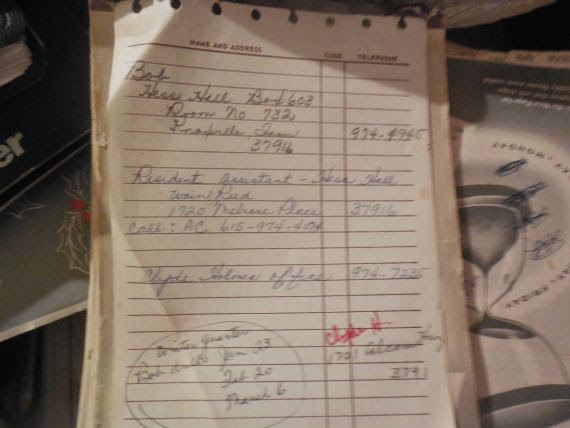 NAME AND ADDRESS CODE TELEPHONE
Bob
Hess Hall Box 603
Room No 732
Knoxville, Tenn 974-4945
37916
Resident Assistant - Hess Hall
Reed
1720 Melrose Place 37916
Call: AC 615-974-
Clyde Holmes office 974-7235
Winter quarter
Bob Jan 23
Feb 20
March 6
H.
1721 Hwy
3791
er
MONDAY
FRIDAY